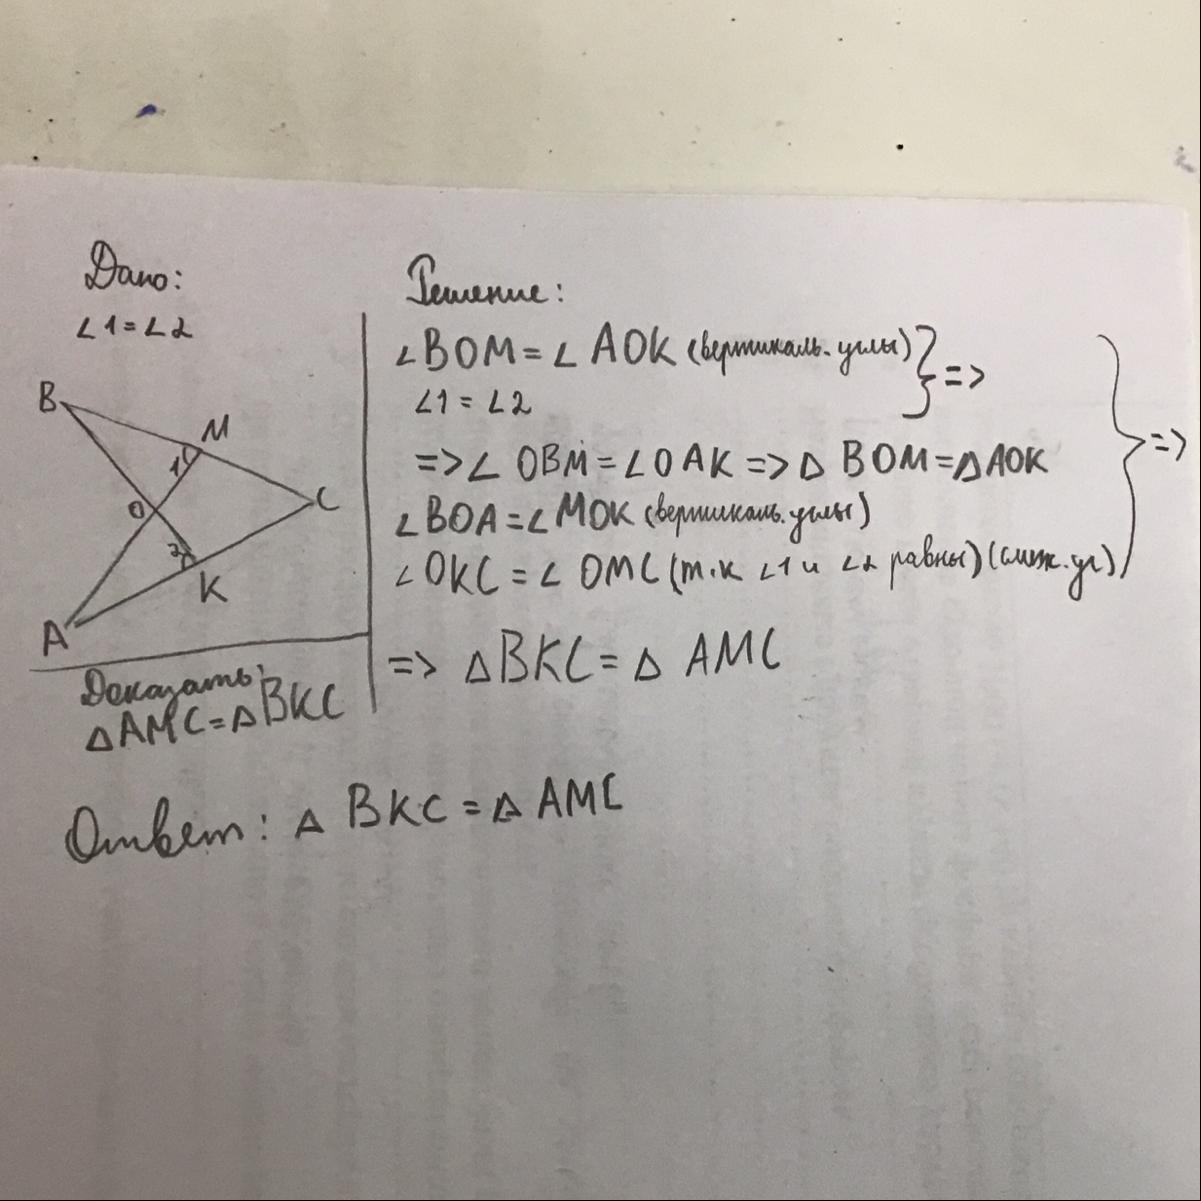 Дано:
∠1=∠2
B
M
1
O
C
2
K
A
Доказать:
△AMC=△BKC
Решение:
∠BOM=∠AOK (вертикаль. углы) } =>
∠1=∠2
=>∠OBM=∠OAK=>△BOM=△AOK
∠BOA=∠MOK (вертикаль. углы)
∠OKC=∠OMC (т.к ∠1 и ∠2 равны) (смеж. уг) } =>
=> △BKC=△AMC
Ответ: △BKC=△AMC